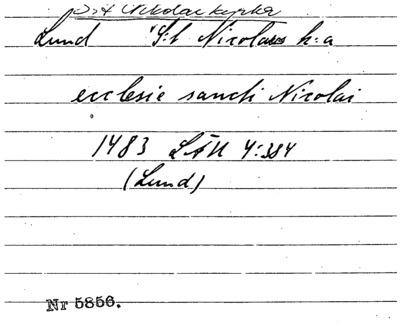 S:t Nikolai kyrka
Lund S:t Nicolaus k:a
ecclesie sancti Nicolai
1483 LÄU 4:384
(Lund)
Nr 5856.